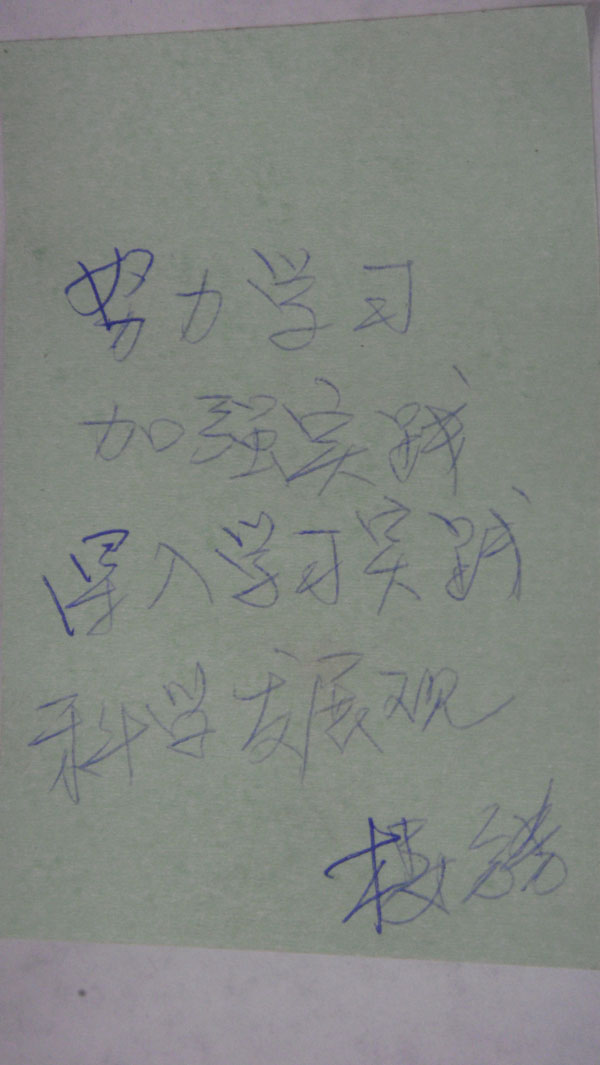 努力学习
加强实践
深入学习实践
科学发展观